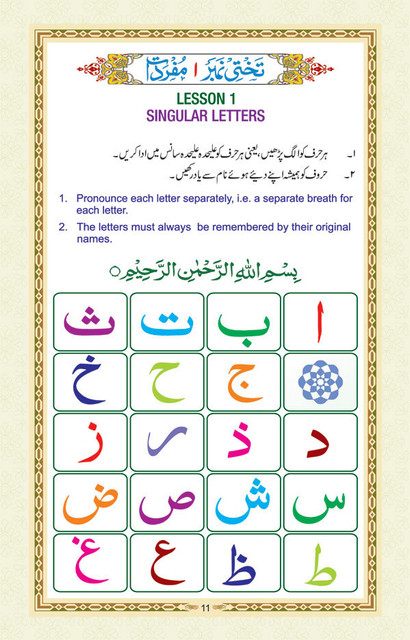 تختی نمبر ۱ مفردات
LESSON 1
SINGULAR LETTERS
۱۔ ہر حرف کو الگ پڑھیں، یعنی ہر حرف کو علیحدہ علیحدہ سانس میں ادا کریں۔
۲۔ حروف کو ہمیشہ اپنے دیئے ہوئے نام سے یاد رکھیں۔
1. Pronounce each letter separately, i.e. a separate breath for
each letter.
2. The letters must always be remembered by their original
names.
بِسْمِ اللهِ الرَّحْمٰنِ الرَّحِيْمِ
ا ب ت ث
ج ح خ
د ذ ر ز
س ش ص ض
ط ظ ع غ
11